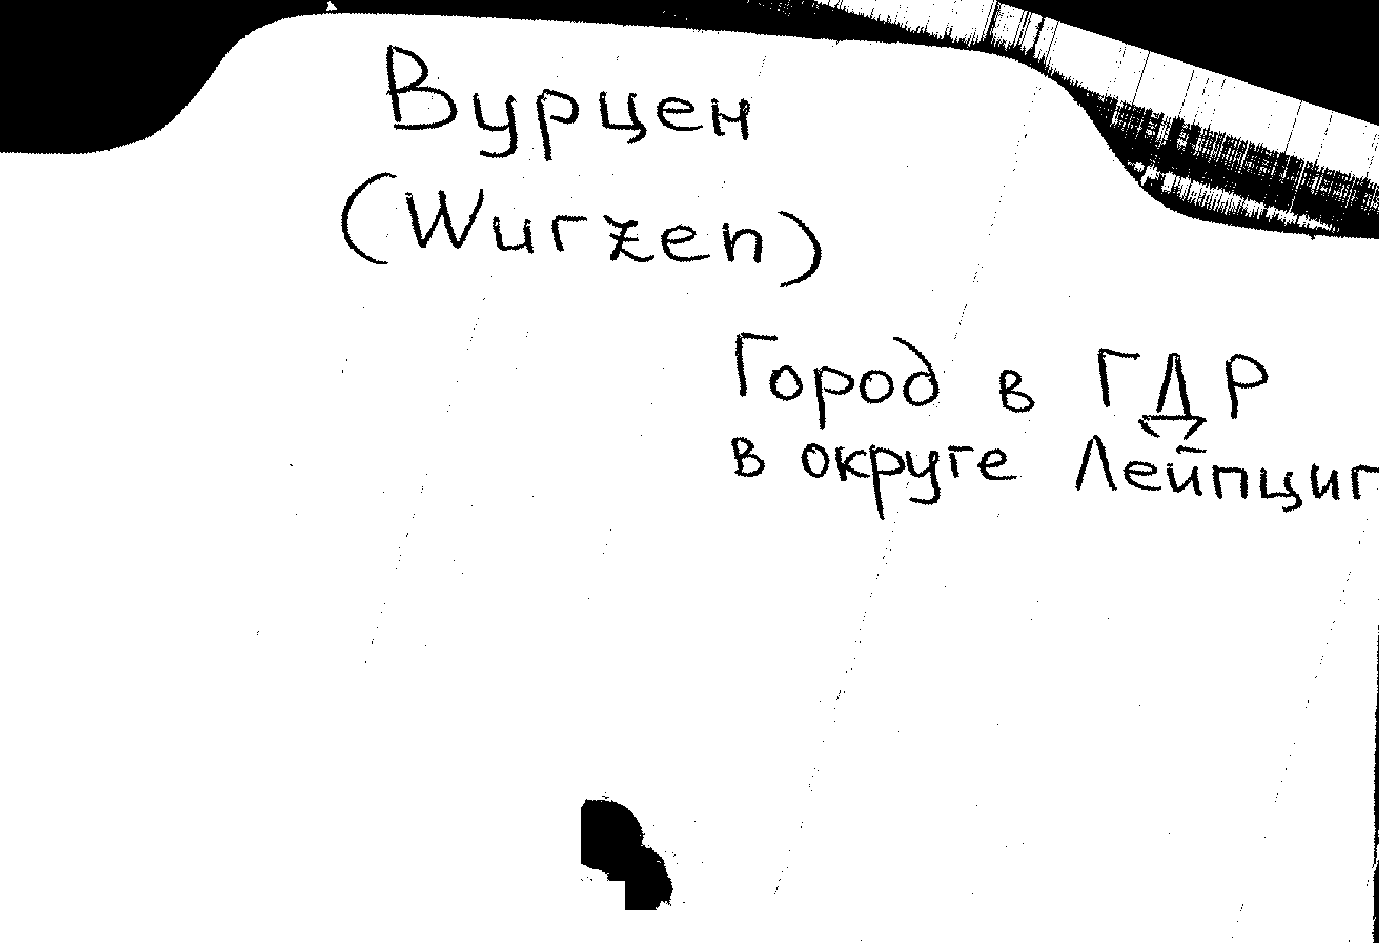 Вурцен
(Wurzen)
Город в ГДР
в округе Лейпциг